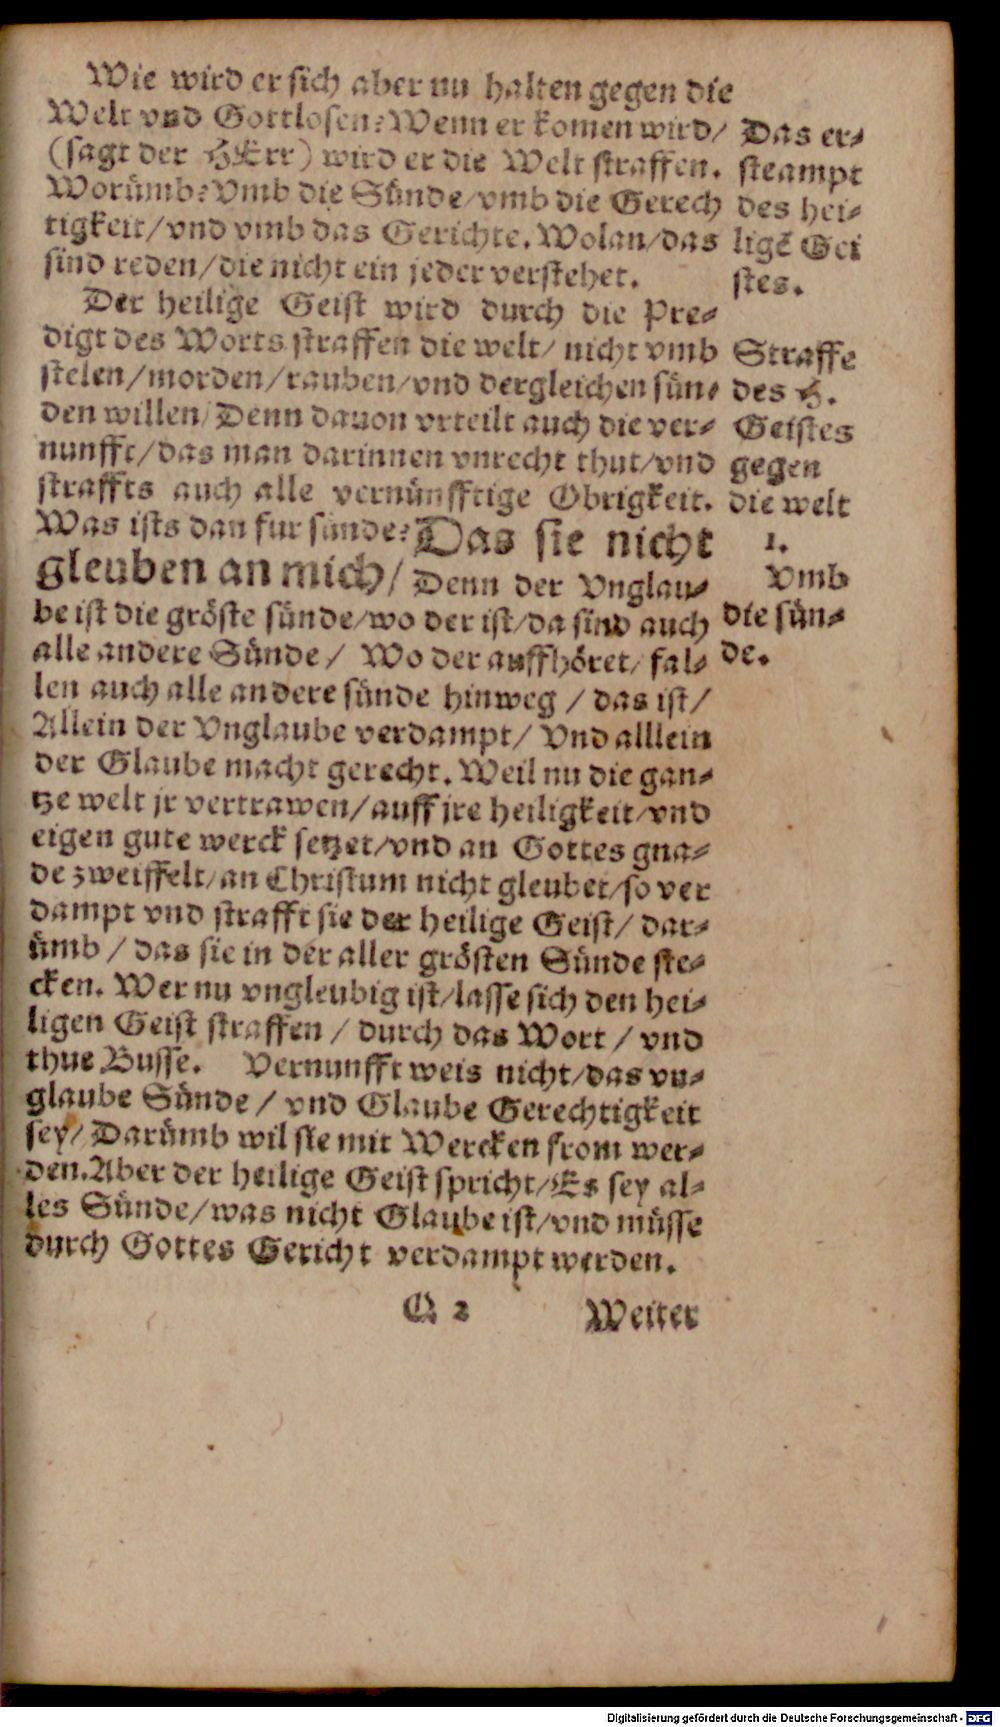 Wie wird er sich aber nu halten gegen die
Welt vnd Gottlosen? Wenn er komen wird/
(sagt der HErr) wird er die Welt straffen.
Worümb? Vmb die Sünde/vmb die Gerech
tigkeit/vnd vmb das Gerichte. Wolan/das
sind reden/die nicht ein jeder verstehet.
Der heilige Geist wird durch die Pre-
digt des Worts straffen die welt/ nicht vmb
stelen/morden/rauben/vnd dergleichen sün-
den willen/ Denn dauon vrteilt auch die ver-
nunfft/das man darinnen vnrecht thut/vnd
straffts auch alle vernünfftige Obrigkeit.
Was ists dan fur sünde? Das sie nicht
gleuben an mich/ Denn der Vnglau-
be ist die gröste sünde/wo der ist/da sind auch
alle andere Sünde/ Wo der auffhöret/ fal-
len auch alle andere sünde hinweg / das ist/
Allein der Vnglaube verdampt/ Vnd alllein
der Glaube macht gerecht. Weil nu die gan-
tze welt jr vertrawen/auff jre heiligkeit/vnd
eigen gute werck setzet/vnd an Gottes gna-
de zweiffelt/an Christum nicht gleubet/so ver
dampt vnd strafft sie der heilige Geist/ dar-
ümb / das sie in der aller grösten Sünde ste-
cken. Wer nu vngleubig ist/lasse sich den hei-
ligen Geist straffen / durch das Wort / vnd
thue Busse. Vernunfft weis nicht/das vn-
glaube Sünde / vnd Glaube Gerechtigkeit
sey/ Darümb wil sie mit Wercken from wer-
den. Aber der heilige Geist spricht/Es sey al-
les Sünde/was nicht Glaube ist/vnd müsse
durch Gottes Gericht verdampt werden.
Q 2 Weiter
Das er-
steampt
des hei-
ligẽ Gei
stes.
Straffe
des H.
Geistes
gegen
die welt
1.
Vmb
die sün-
de.
Digitalisierung gefördert durch die Deutsche Forschungsgemeinschaft - DFG